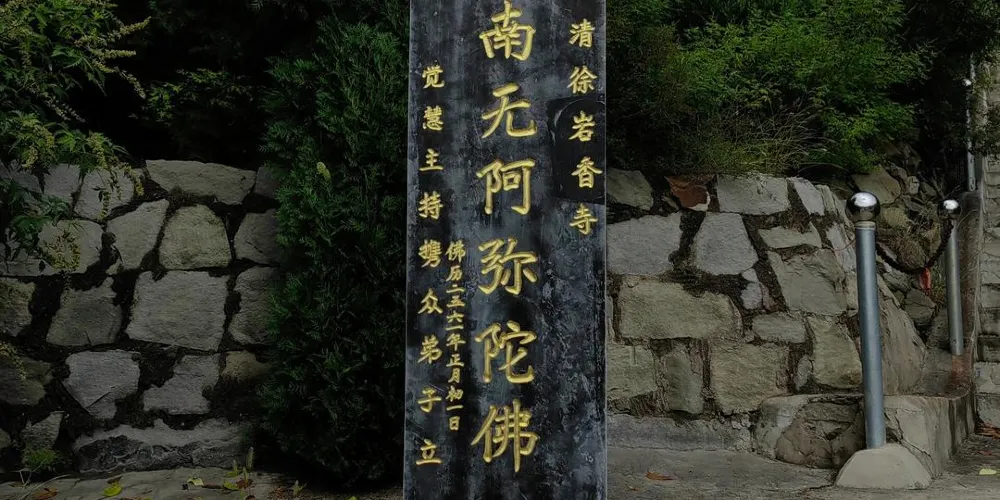 清徐岩香寺
南无阿弥陀佛
佛历二五六一年正月初一日
觉慧主持携众弟子立